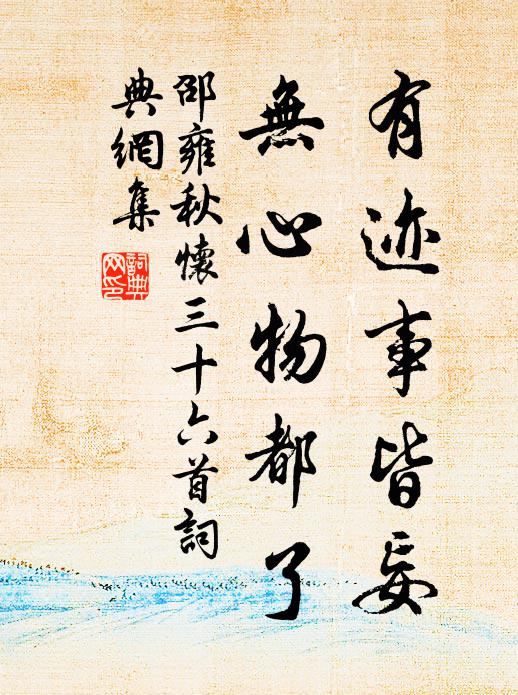 有迹事皆妄
無心物都了
邵雍秋懷三十六首詞
典網集
詞典网印